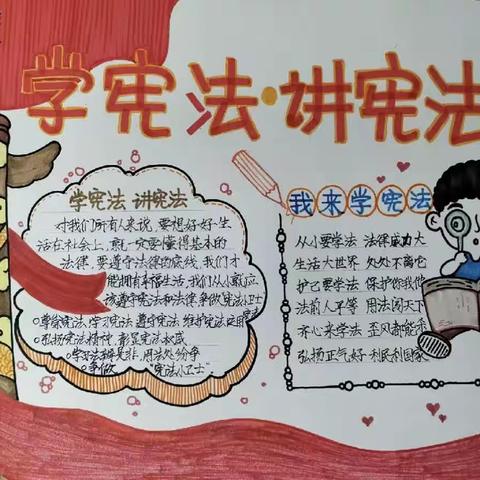 学宪法·讲宪法
学宪法 讲宪法
对我们所有人来说,要想好好生
活在社会上,就一定要懂得基本的
法律,要遵守法律的底线,我们才
能拥有幸福生活,我们从小就应
该遵守宪法和法律 争做宪法小卫士
尊崇宪法 学习宪法 遵守宪法 维护宪法 运用宪法
弘扬宪法精神,彰显宪法权威
学习法辨是非,用法处纷争
争做 "宪法小卫士"
我来学宪法
从小要学法 法律威力大
生活大世界 处处不离它
护己要学法 保护你我他
法前人平等 用法闯天下
齐心来学法 歪风都能杀
弘扬正气好 利民利国家